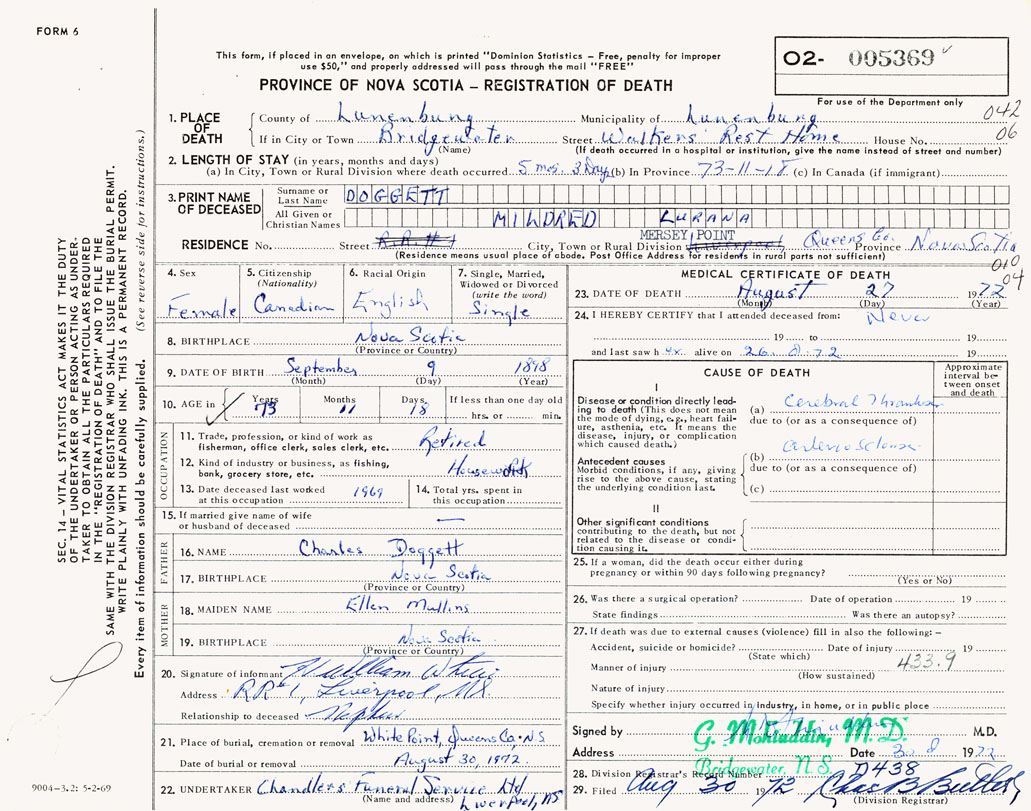 FORM 6
This form, if placed in an envelope, on which is printed "Dominion Statistics – Free, penalty for improper
use $50," and properly addressed will pass through the mail "FREE"
PROVINCE OF NOVA SCOTIA – REGISTRATION OF DEATH
O2- 005369
For use of the Department only
042
06
1. PLACE OF DEATH
County of Lunenburg Municipality of Lunenburg
If in City or Town Bridgewater Street Walkers' Rest Home House No.
(Name) (If death occurred in a hospital or institution, give the name instead of street and number)
2. LENGTH OF STAY (in years, months and days)
(a) In City, Town or Rural Division where death occurred 5 mos. 3 Days (b) In Province 73-11-18 (c) In Canada (if immigrant)
3. PRINT NAME OF DECEASED
Surname or Last Name DOGGETT
All Given or Christian Names MILDRED LURANA
MERSEY POINT
RESIDENCE No. Street R.R.#1 City, Town or Rural Division Liverpool Queens Co. Province Nova Scotia
(Residence means usual place of abode. Post Office Address for residents in rural parts not sufficient)
010
04
4. Sex Female
5. Citizenship (Nationality) Canadian
6. Racial Origin English
7. Single, Married, Widowed or Divorced (write the word) Single
8. BIRTHPLACE Nova Scotia
(Province or Country)
9. DATE OF BIRTH September 9 1898
(Month) (Day) (Year)
10. AGE in Years 73 Months 11 Days 18 If less than one day old
hrs. or min.
OCCUPATION
11. Trade, profession, or kind of work as
fisherman, office clerk, sales clerk, etc. Retired
12. Kind of industry or business, as fishing,
bank, grocery store, etc. Housework
13. Date deceased last worked
at this occupation 1969
14. Total yrs. spent in
this occupation
15. If married give name of wife
or husband of deceased —
FATHER
16. NAME Charles Doggett
17. BIRTHPLACE Nova Scotia
(Province or Country)
MOTHER
18. MAIDEN NAME Ellen Mullins
19. BIRTHPLACE Nova Scotia
(Province or Country)
20. Signature of informant William White
Address RR#1, Liverpool, NS.
Relationship to deceased Nephew
21. Place of burial, cremation or removal White Point, Queens Co. NS
Date of burial or removal August 30, 1972
22. UNDERTAKER Chandlers Funeral Service Ltd
(Name and address) Liverpool, NS
MEDICAL CERTIFICATE OF DEATH
23. DATE OF DEATH August 27 1972
(Month) (Day) (Year)
24. I HEREBY CERTIFY that I attended deceased from:
19 to 19
and last saw h er alive on 26. 8. 72 19
CAUSE OF DEATH
Approximate interval between onset and death
I
Disease or condition directly leading to death (This does not
mean the mode of dying, e.g., heart failure,
asthenia, etc. It means the
disease, injury, or complication
which caused death.)
(a) Cerebral
due to (or as a consequence of)
Antecedent causes
Morbid conditions, if any, giving
rise to the above cause, stating
the underlying condition last.
(b)
due to (or as a consequence of)
(c)
II
Other significant conditions
contributing to the death, but not
related to the disease or condition
causing it.
25. If a woman, did the death occur either during
pregnancy or within 90 days following pregnancy?
(Yes or No)
26. Was there a surgical operation? Date of operation 19
State findings Was there an autopsy?
27. If death was due to external causes (violence) fill in also the following: –
Accident, suicide or homicide? Date of injury 19
(State which)
433.9
Manner of injury
(How sustained)
Nature of injury
Specify whether injury occurred in industry, in home, or in public place
Signed by M.D.
G. Mohiuddin, M. D.
Address Bridgewater, N. S. Date 30 8 1972
28. Division Registrar's Record Number D438
29. Filed Aug 30 1972 Chas B Butler,
(Division Registrar)
SEC. 14 – VITAL STATISTICS ACT MAKES IT THE DUTY
OF THE UNDERTAKER OR PERSON ACTING AS UNDER-
TAKER TO OBTAIN ALL THE PARTICULARS REQUIRED
IN THE "REGISTRATION OF DEATH" AND TO FILE THE
SAME WITH THE DIVISION REGISTRAR WHO SHALL ISSUE THE BURIAL PERMIT.
WRITE PLAINLY WITH UNFADING INK. THIS IS A PERMANENT RECORD.
Every item of information should be carefully supplied. (See reverse side for instructions.)
9004-3.2: 5-2-69